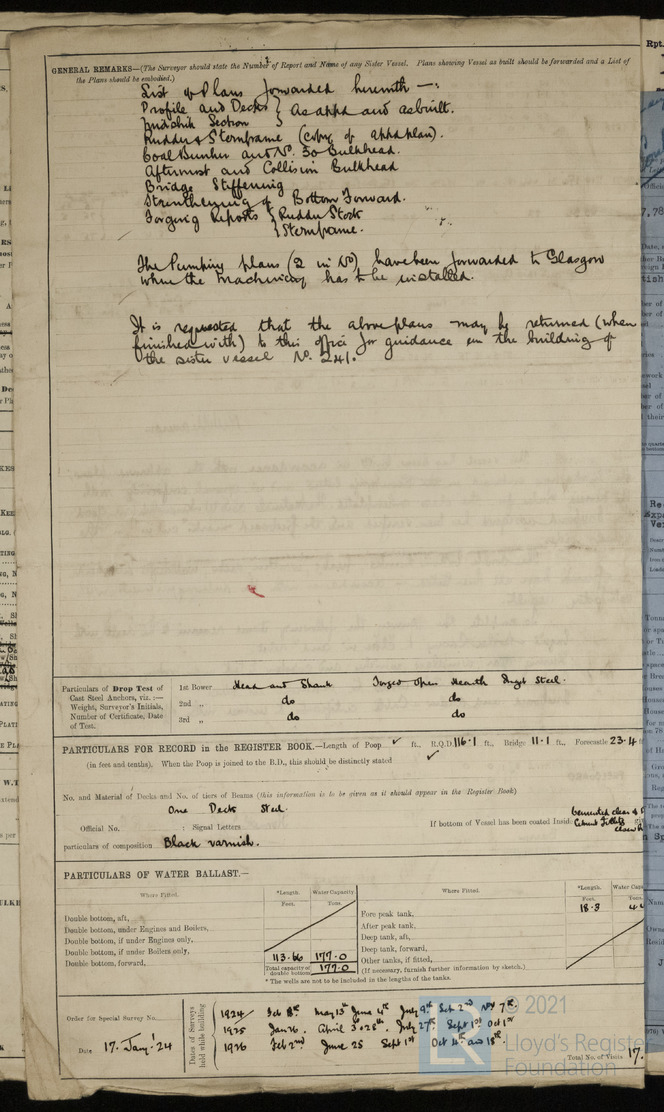 GENERAL REMARKS—(The Surveyor should state the Number of Report and Name of any Sister Vessel. Plans showing Vessel as built should be forwarded and a List of
the Plans should be embodied.)
List of Plans forwarded herewith —:
Profile and Decks } As appd and as built.
Midship Section }
Rudder & Sternframe (copy of appd plan).
Coal Bunker and No. 50 Bulkhead.
Aftermost and Collision Bulkhead
Bridge Stiffening
Strengthening of Bottom Forward.
Forging Reports { Rudder Stock
{ Sternframe.
The Pumping plans (2 in No) have been forwarded to Glasgow
where the machinery has to be installed.
It is requested that the above plans may be returned (when
finished with) to this office for guidance in the building of
the sister vessel No. 241.
Particulars of Drop Test of
Cast Steel Anchors, viz. :—
Weight, Surveyor's Initials,
Number of Certificate, Date
of Test.
1st Bower Head and Shank Forged Open Hearth Ingot Steel.
2nd „ do do
3rd „ do do
PARTICULARS FOR RECORD in the REGISTER BOOK.—Length of Poop ✓ ft., R.Q.D. 116·1 ft., Bridge 11·1 ft., Forecastle 23·4 ft
(in feet and tenths). When the Poop is joined to the B.D., this should be distinctly stated ✓
No. and Material of Decks and No. of tiers of Beams (this information is to be given as it should appear in the Register Book)
One Deck Steel.
Official No. ; Signal Letters If bottom of Vessel has been coated Inside Cemented clear &
Cement fillets
particulars of composition Black varnish.
PARTICULARS OF WATER BALLAST.—
Where Fitted. *Length. Water Capacity Where Fitted. *Length. Water Capa
Feet. Tons. Feet. Tons.
Double bottom, aft, Fore peak tank, 18·3
Double bottom, under Engines and Boilers, After peak tank,
Double bottom, if under Engines only, Deep tank, aft,
Double bottom, if under Boilers only, 113·66 177·0 Deep tank, forward,
Double bottom, forward, Total capacity of double bottom 177·0 Other tanks, if fitted,
(If necessary, furnish further information by sketch.)
* The wells are not to be included in the lengths of the tanks.
Order for Special Survey No.
Date 17. Jany! 24
Dates of Surveys held while building
1924 Feb 18th May 13th June 4th July 9th Sept 2nd Nov 7th.
1925 Jan 26. April 3rd 28th. July 27th. Sept 1st Oct 1st
1926 Feb 2nd June 25 Sept 1st Oct 4th and 18th.
Total No. of Visits 17.
© 2021
LR
Lloyd's Register
Foundation